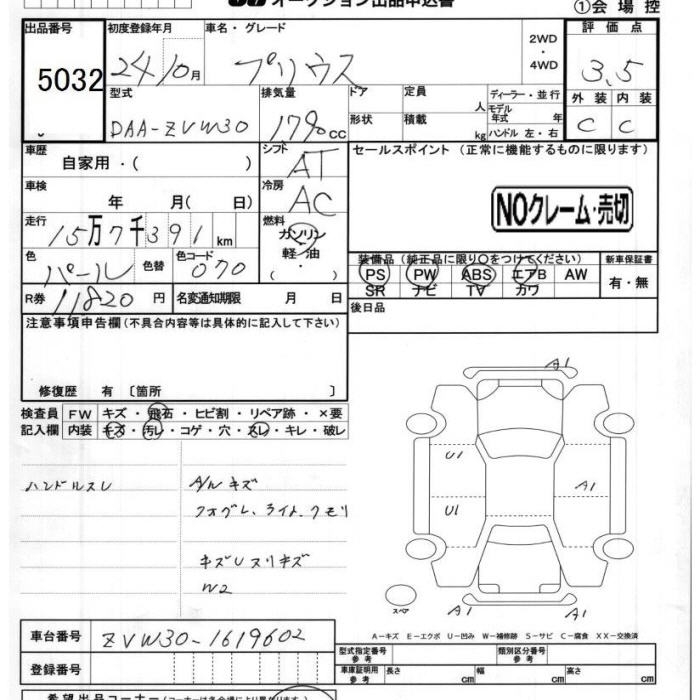 オークション出品申込書
①会場控
出品番号 初度登録年月 車名・グレード 2WD・4WD 評価点
5032 24/10月 プリウス 3.5
型式 排気量 ドア 定員 人 ディーラー・並行 外装 内装
DAA-ZVW30 1790cc 形状 積載 kg モデル年式 年 ハンドル 左・右 C C
車歴 自家用・( ) シフト AT セールスポイント (正常に機能するものに限ります)
車検 年 月( 日) 冷房 AC
NOクレーム・売切
走行 15万7千391km 燃料 ガソリン 軽・油 ( ・ )
色 パール 色替 色コード 070
装備品(純正品に限り○をつけてください) 新車保証書
PS PW ABS エアB AW 有・無
SR ナビ TV カワ
R券 11820円 名変通知期限 月 日
後日品
注意事項申告欄(不具合内容等は具体的に記入して下さい)
修復歴 有 〔箇所 〕
検査員 FW キズ・飛石・ヒビ割・リペア跡・×要
記入欄 内装 キズ・汚レ・コゲ・穴・スレ・キレ・破レ
ハンドルスレ
A/ルキズ
フォグレ、ライト、クモリ
キズUスリキズ
W2
A1
U1
A1
U1
スペア
A1
A1
A-キズ E-エクボ U-凹み W-補修跡 S-サビ C-腐食 XX-交換済
車台番号 ZVW30-1619602
型式指定番号 参考 類別区分番号 参考
登録番号
車庫証明用 参考 長さ cm 幅 cm 高さ cm
希望出品コーナー